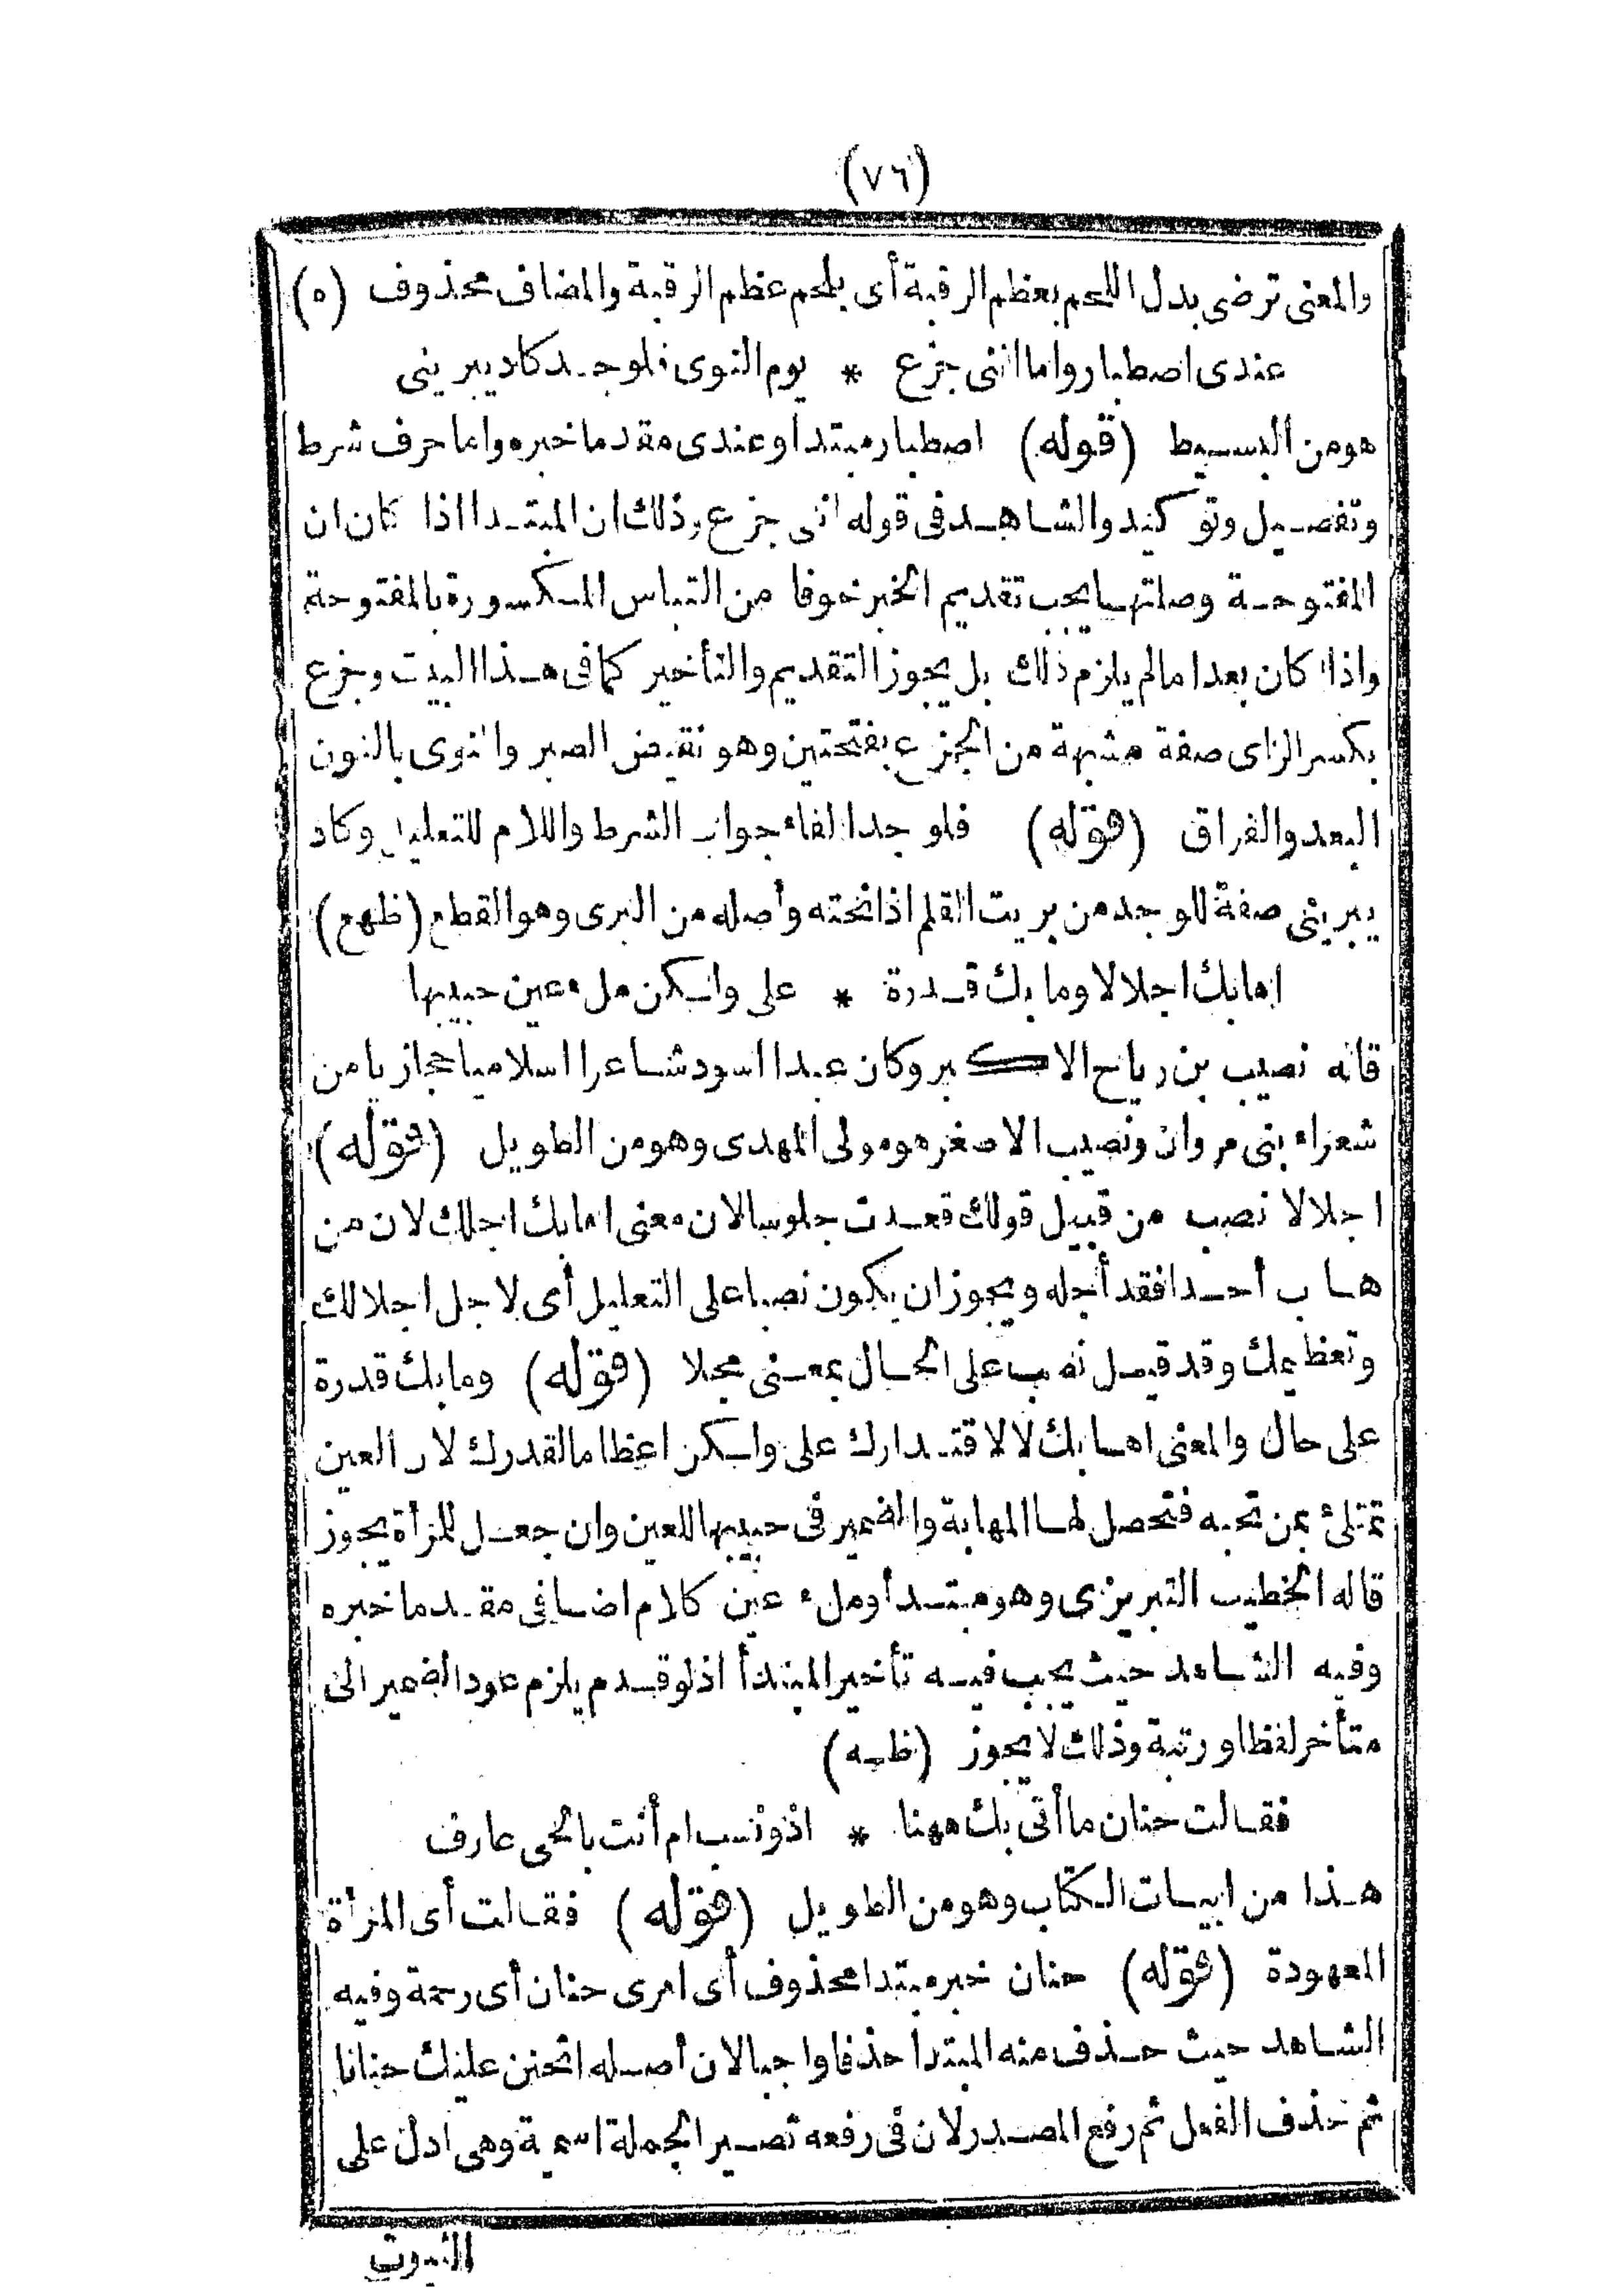 (٧٦)
والمعنى ترضى بدل اللحم بعظم الرقبة أى بلحم عظم الرقبة والمضاف محذوف (ه)
عندى اصطبار واما اننى جزع * يوم النوى فلوجد كاد يبرينى
هو من البسيط (قوله) اصطبار مبتدأ وعندى مقدما خبره واما حرف شرط
وتفصيل وتوكيد والشاهد فى قوله اننى جزع وذلك ان المبتدا اذا كان ان
المفتوحة وصلتها يجب تقديم الخبر خوفا من التباس المكسورة بالمفتوحة
واذا كان بعد اما لم يلزم ذلك بل يجوز التقديم والتأخير كما فى هذا البيت وجزع
بكسر الزاى صفة مشبهة من الجزع بفتحتين وهو نقيض الصبر والنوى بالنون
البعد والفراق (قوله) فلوجد الفاء جواب الشرط واللام للتعليل وكاد
يبرينى صفة للوجد من بريت القلم اذا نحته وأصله من البرى وهو القطع (ظهع)
اهابك اجلالا وما بك قدرة * على ولكن ملء عين حبيبها
قاله نصيب بن رياح الاكبر وكان عبدا اسود شاعرا اسلاميا حجازيا من
شعراء بنى مروان ونصيب الاصغر هو مولى المهدى وهو من الطويل (قوله)
اجلالا نصب من قبيل قولك قعدت جلوسا لان معنى اهابك اجلك لان من
هاب أحدا فقد أجله ويجوز ان يكون نصبا على التعليل أى لاجل اجلالك
وتعظيمك وقد قيل نصب على الحال بمعنى مجلا (قوله) وما بك قدرة
على حال والمعنى اهابك لا لاقتدارك على ولكن اعظاما لقدرك لان العين
تمتلئ بمن تحبه فتحصل لها المهابة والضمير فى حبيبها للعين وان جعل للمرأة يجوز
قاله الخطيب التبريزى وهو مبتدأ وملء عين كلام اضافى مقدما خبره
وفيه الشاهد حيث يجب فيه تأخير المبتدأ اذ لو قدم يلزم عود الضمير الى
متأخر لفظا ورتبة وذلك لا يجوز (ظه)
فقالت حنان ما أتى بك ههنا * اذو نسب ام أنت بالحى عارف
هذا من ابيات الكتاب وهو من الطويل (قوله) فقالت أى المرأة
المعهودة (قوله) حنان خبر مبتدا محذوف أى امرى حنان أى رحمة وفيه
الشاهد حيث حذف منه المبتدأ حذفا واجبا لان أصله اتحنن عليك حنانا
ثم حذف الفعل ثم رفع المصدر لان فى رفعه تصير الجملة اسمية وهى ادل على
الثبوت